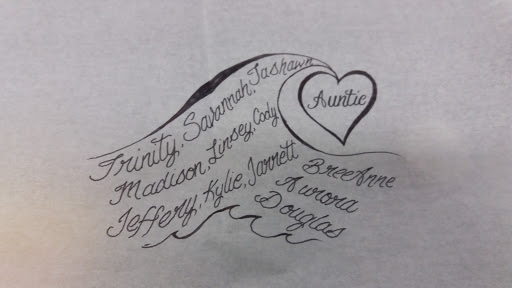 Trinity, Savannah, Tashawn
Auntie
Madison, Linsey, Cody
Jeffery, Kylie, Jarrett
BreeAnne
Aurora
Douglas